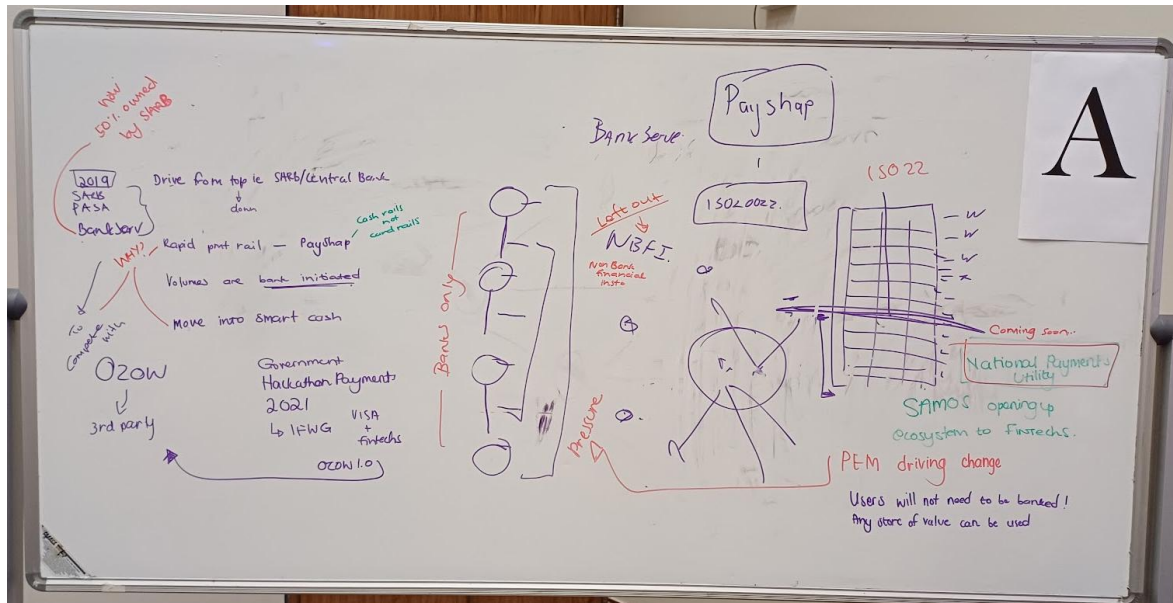 now
50% owned
by SARB
2019
SARB
PASA
BankServ
Drive from top ie SARB/Central Bank
down
WHY?
Rapid pmt rail, — Payshap
Cash rails
not
card rails
Volumes are bank initiated
Move into smart cash
To
Compete
with
OZOW
3rd party
Government
Hackathon Payments
2021
↳ IFWG
VISA
+
fintechs
OZOW 1.0
Banks only
BANKServe.
Payshap
ISO20022.
Left out
NBFI.
Non Bank
financial
insts
Pressure
ISO 22
W
W
W
x
Coming soon..
National Payments
Utility
SAMOS opening up
ecosystem to FINTECHS.
PEM driving change
Users will not need to be banked!
Any store of value can be used
A